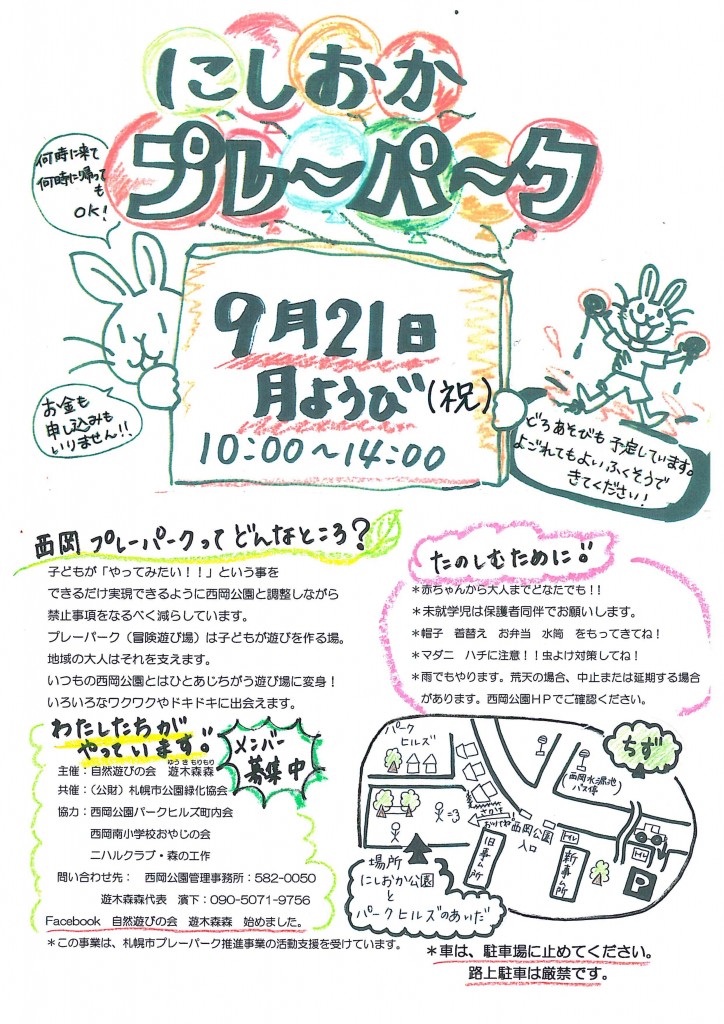 にしおか
プレーパーク
何時に来て
何時に帰って
も
OK!
9月21日
月ようび(祝)
10:00～14:00
お金も
申し込みも
いりません!!
どろあそびも予定しています。
よごれてもよいふくそうで
きてください!
西岡プレーパークってどんなところ?
子どもが「やってみたい！！」という事を
できるだけ実現できるように西岡公園と調整しながら
禁止事項をなるべく減らしています。
プレーパーク（冒険遊び場）は子どもが遊びを作る場。
地域の大人はそれを支えます。
いつもの西岡公園とはひとあじちがう遊び場に変身！
いろいろなワクワクやドキドキに出会えます。
たのしむために!!
＊赤ちゃんから大人までどなたでも！！
＊未就学児は保護者同伴でお願いします。
＊帽子　着替え　お弁当　水筒　をもってきてね！
＊マダニ　ハチに注意！！虫よけ対策してね！
＊雨でもやります。荒天の場合、中止または延期する場合
があります。西岡公園ＨＰでご確認ください。
わたしたちが
やっています!!
メンバー
募集中
ゆうきもりもり
主催：自然遊びの会　遊木森森
共催：（公財）札幌市公園緑化協会
協力：西岡公園パークヒルズ町内会
西岡南小学校おやじの会
ニハルクラブ・森の工作
問い合わせ先：　西岡公園管理事務所：582-0050
遊木森森代表　濱下：090-5071-9756
Facebook　自然遊びの会　遊木森森　始めました。
＊この事業は、札幌市プレーパーク推進事業の活動支援を受けています。
パーク
ヒルズ
ちず
西岡水源池
(バス停)
さかを
おりてね!
西岡公園
入口
旧事ム所
新事ム所
トイレ
トイレ
P
場所
にしおか公園
と
パークヒルズのあいだ
＊車は、駐車場に止めてください。
路上駐車は厳禁です。